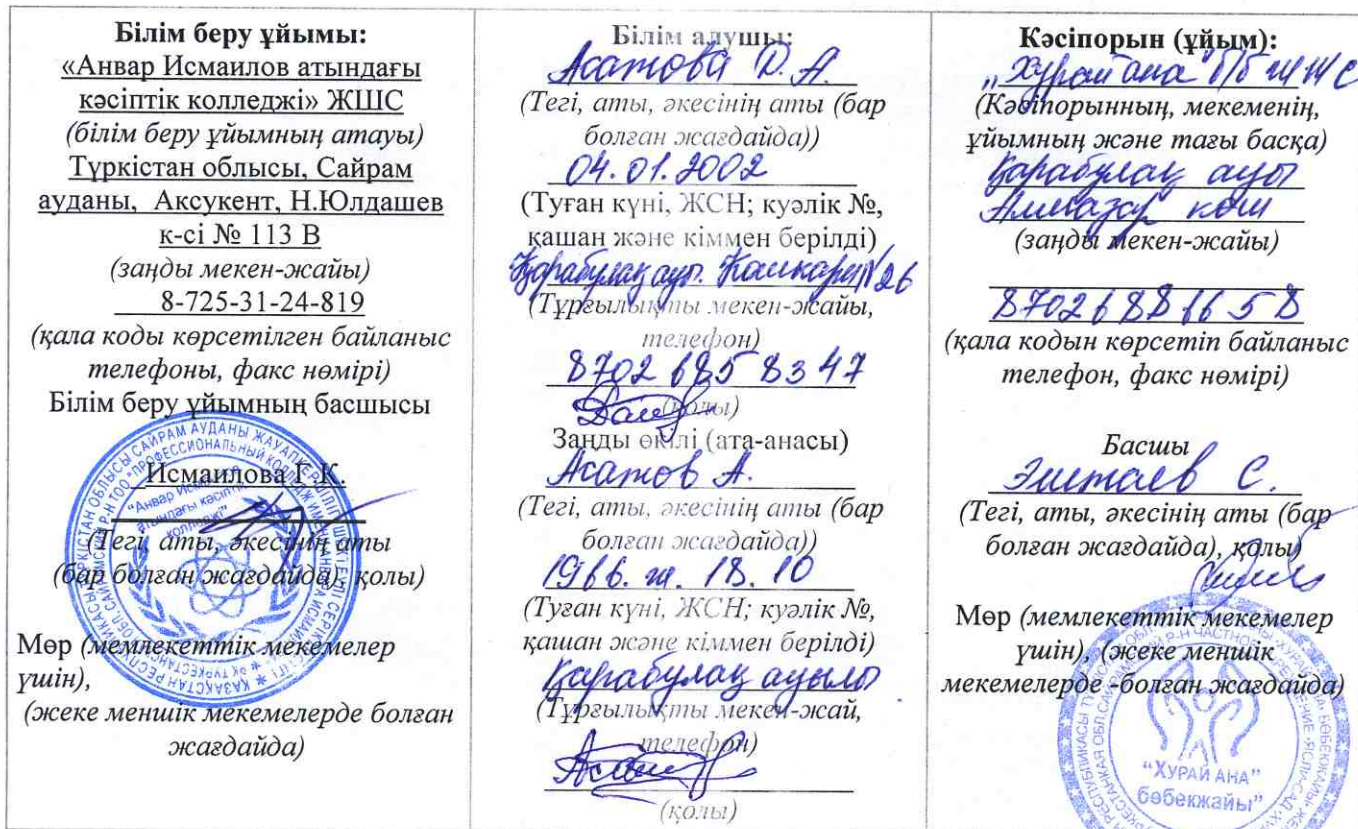 Білім беру ұйымы:
«Анвар Исмаилов атындағы
кәсіптік колледжі» ЖШС
(білім беру ұйымның атауы)
Түркістан облысы, Сайрам
ауданы, Аксукент, Н.Юлдашев
к-сі № 113 В
(заңды мекен-жайы)
8-725-31-24-819
(қала коды көрсетілген байланыс
телефоны, факс нөмірі)
Білім беру ұйымның басшысы
Исмаилова Г.К.
(Тегі, аты, әкесінің аты
(бар болған жағдайда), қолы)
Мөр (мемлекеттік мекемелер
үшін),
(жеке меншік мекемелерде болған
жағдайда)
"Анвар Исмаилов
атындағы кәсіптік
колледжі"
Білім алушы:
Асатова Д. А.
(Тегі, аты, әкесінің аты (бар
болған жағдайда))
04.01.2002
(Туған күні, ЖСН; куәлік №,
қашан және кіммен берілді)
Қарабулақ ауы. Кашкари №26
(Тұрғылықты мекен-жайы,
телефон)
8702 685 83 47
(қолы)
Заңды өкілі (ата-анасы)
Асатов А.
(Тегі, аты, әкесінің аты (бар
болған жағдайда))
1966. ж. 18. 10
(Туған күні, ЖСН; куәлік №,
қашан және кіммен берілді)
Қарабулақ ауылы
(Тұрғылықты мекен-жай,
телефон)
(қолы)
Кәсіпорын (ұйым):
"Хурай ана" б/б ЖМ
(Кәсіпорынның, мекеменің,
ұйымның және тағы басқа)
Қарабулақ ауы
Алмазар көш
(заңды мекен-жайы)
8702 6 88 66 5 8
(қала кодын көрсетіп байланыс
телефон, факс нөмірі)
Басшы
Эштаев С.
(Тегі, аты, әкесінің аты (бар
болған жағдайда), қолы)
Мөр (мемлекеттік мекемелер
үшін), (жеке меншік
мекемелерде -болған жағдайда)
"ХУРАЙ АНА"
бөбекжайы"